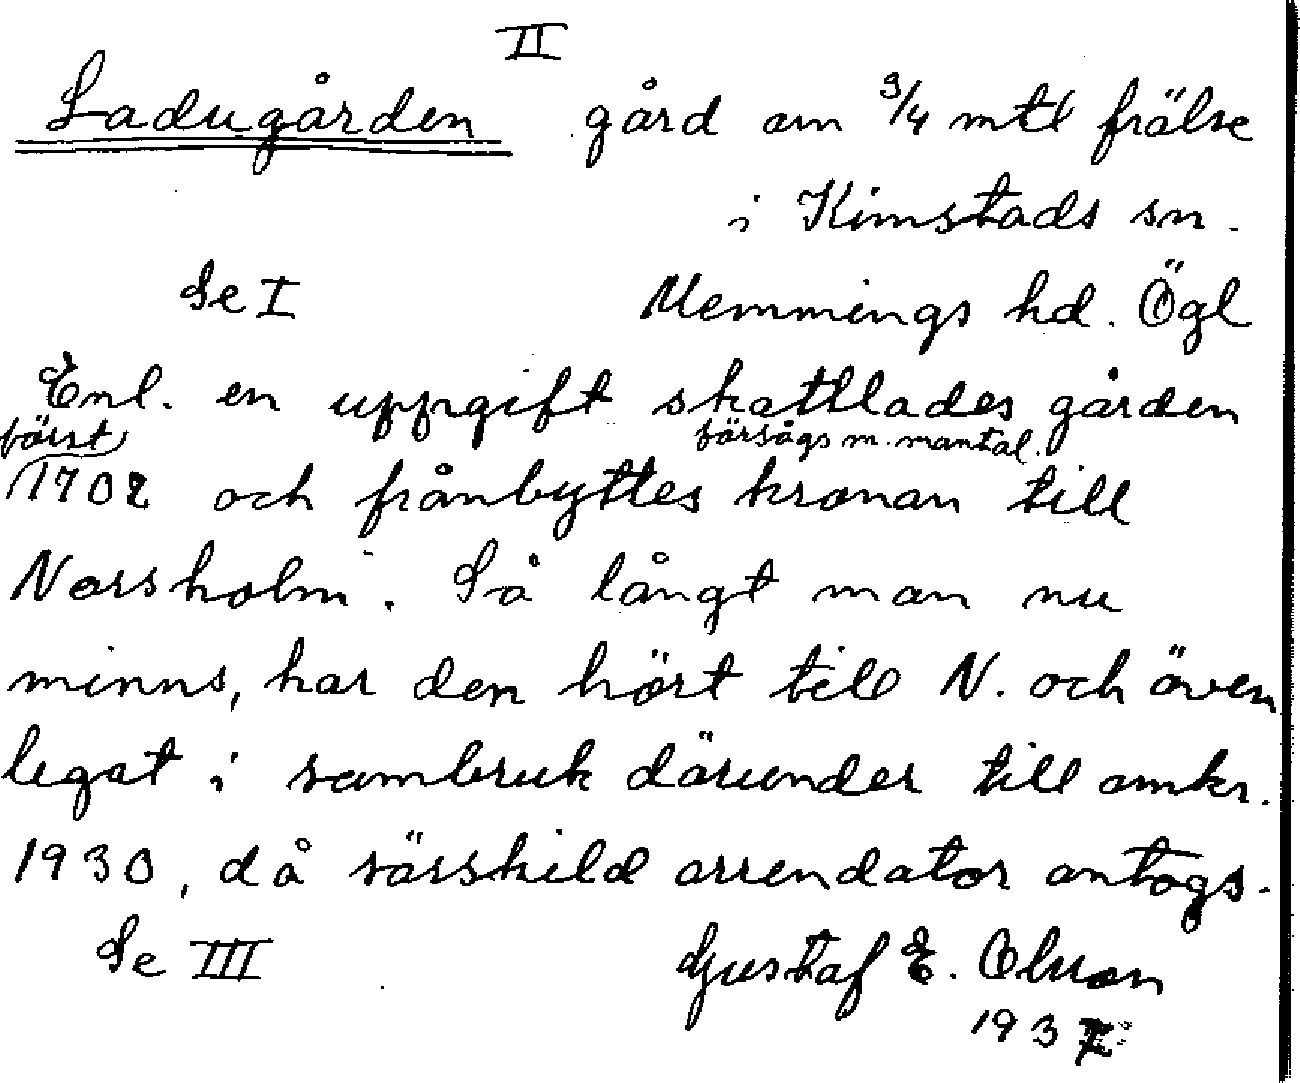 II
Ladugården gård om 3/4 mtl frälse
i Kimstads sn.
Se I Memmings hd. Ögl
Enl. en uppgift skattlades gården
först försågs m. mantal.
1702 och frånbyttes kronan till
Norsholm. Så långt man nu
minns, har den hört till N. och även
legat i sambruk därunder till omkr.
1930, då särskild arrendator antogs.
Se III Gustaf E. Olson
1937